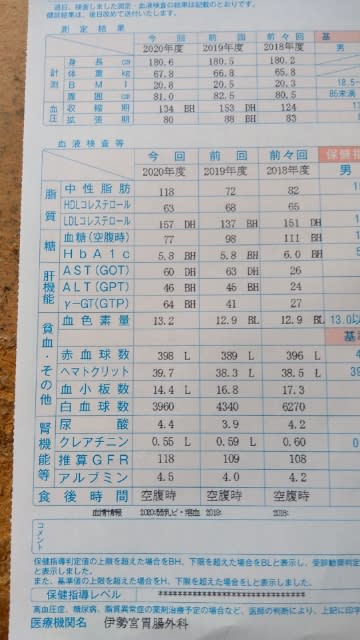 過日、検査しました測定・血液検査の結果は記載のとおりです。
健診結果は、後日改めて送付いたします。
測 定 結 果
今 回 前 回 前々回 基
2020年度 2019年度 2018年度 男
計測 身 長 cm 180.6 180.5 180.2
体 重 kg 67.8 66.8 65.8
B M I 20.8 20.5 20.3 18.5~
腹 囲 cm 81.0 82.5 80.5 85未満
血圧 収 縮 期 134 BH 153 DH 124
拡 張 期 80 88 BH 83
血液検査等
今 回 前 回 前々回 保健指
2020年度 2019年度 2018年度 男
脂質 中 性 脂 肪 118 72 82
HDLコレステロール 63 68 65
LDLコレステロール 157 DH 137 BH 151 DH
糖 血糖(空腹時) 77 98 111 BH
HbA1c 5.8 BH 5.8 BH 6.0 BH
肝機能 AST(GOT) 60 DH 63 DH 26
ALT(GPT) 46 BH 45 BH 24
γ-GT(GTP) 64 BH 41 27
貧血・その他 血 色 素 量 13.2 12.9 BL 12.9 BL 13.0以
基
赤 血 球 数 398 L 389 L 396 L
ヘマトクリット 39.7 38.3 L 38.5 L
血 小 板 数 14.4 L 16.8 17.3
白 血 球 数 3960 4340 6270
腎機能等 尿 酸 4.4 3.9 4.2
クレアチニン 0.55 L 0.59 L 0.60
推 算 GFR 118 109 108
アルブミン 4.5 4.0 4.2
食 後 時 間 空腹時 空腹時 空腹時
血清情報 2020: 2019: 2018:
コメント
保健指導判定値の上限を超えた場合をBH、下限を超えた場合をBLと表示し、受診勧奨判定
と表示しました。
また、基準値の上限を超えた場合をH、下限を超えた場合をLと表示しました。
保健指導レベル
高血圧症、糖尿病、脂質異常症の薬剤治療予定の場合など、医師の判断により、上記に印字
医療機関名 伊勢宮胃腸外科